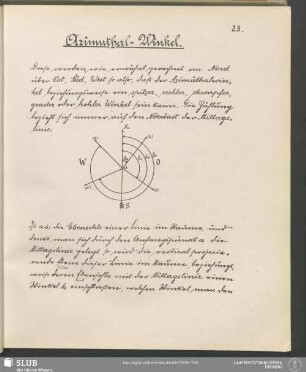 29.
Azimuthal-Winkel.
Diese werden wie erwähnt gerechnet von Nord
über Ost, Süd, West so also, daß der Azimuthalwin-
kel beziehungsweise ein spitzer, rechter, stumpfer,
grader oder hohler Winkel sein kann. Die Zählung
bezieht sich immer auf den Nordast der Mittags-
linie.
W
O
S
Ist ab die Ebensohle einer Linie im Raume, und
denkt man sich durch den Anfangspunkt a die
Mittagslinie gelegt so wird die vertical projeci-
rende Ebene dieser Linie im Raume, beziehungs-
weise deren Ebensohle mit der Mittagslinie einen
Winkel einschließen, welchen Winkel man den
SLUB
Wir führen Wissen.